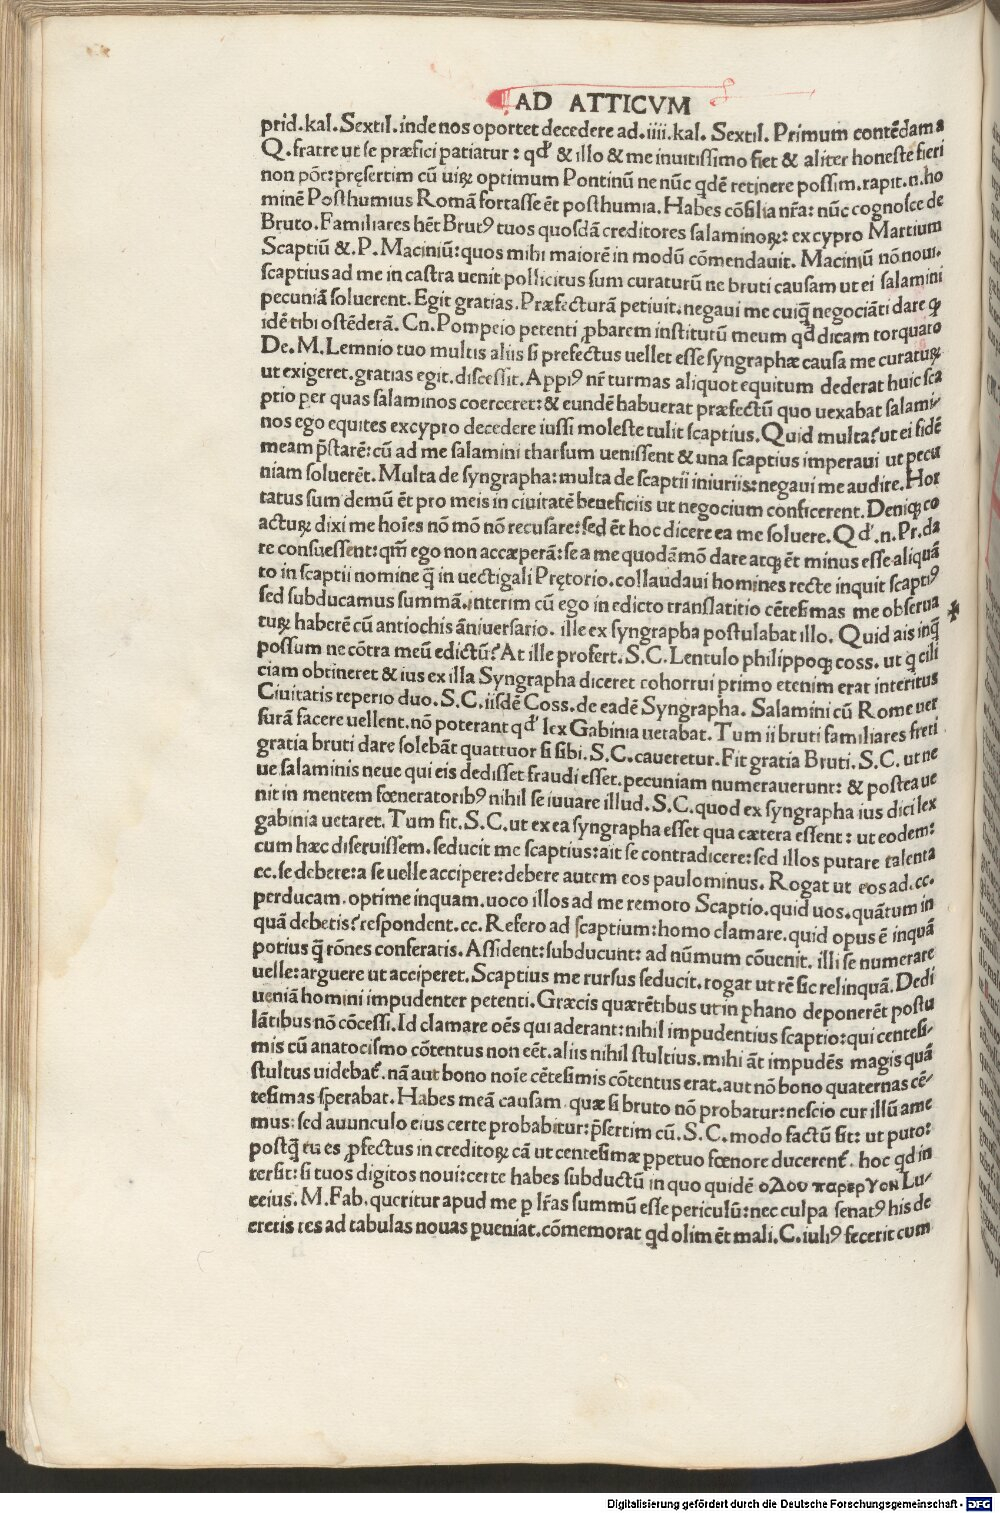 AD ATTICVM
prid.kal.Sextil.inde nos oportet decedere ad.iiii.kal. Sextil. Primum contēdam a
Q.fratre ut se præfici patiatur: qđ & illo & me inuitissimo fiet & aliter honeste fieri
non pōt:pręsertim cū uiꝝ optimum Pontinū ne nūc qdē retinere possim.rapit.n.ho
minē Posthumius Romā fortasse ēt posthumia. Habes cōsilia nr̄a: nūc cognosce de
Bruto. Familiares hēt Brutꝰ tuos quosdā creditores salaminoꝝ: excypro Martium
Scaptiū &.P. Maciniū: quos mihi maiorē in modū cōmendauit. Maciniū nō noui.
scaptius ad me in castra uenit pollicitus sum curaturū ne bruti causam ut ei salamini
pecuniā soluerent. Egit gratias. Præfecturā petiuit.negaui me cuiq̄ negociāti dare ꝙ
idē tibi ostēderā. Cn. Pompeio petenti ꝓbarem institutū meum qđ dicam torquato
De. M. Lemnio tuo multis aliis si prefectus uellet esse syngraphæ causa me curatuꝝ
ut exigeret.gratias egit.discessit. Appiꝰ nr̄ turmas aliquot equitum dederat huic sca
ptio per quas salaminos coerceret: & eundē habuerat præfectū quo uexabat salami-
nos ego equites excypro decedere iussi moleste tulit scaptius. Quid multa? ut ei fidē
meam p̄starē: cū ad me salamini tharsum uenissent & una scaptius imperaui ut pecu
niam soluerēt. Multa de syngrapha: multa de scaptii iniuriis: negaui me audire. Hor
tatus sum demū ēt pro meis in ciuitatē beneficiis ut negocium conficerent. Deniqꝫ co
actuꝝ dixi me hoīes nō mō nō recusare: sed ēt hoc dicere ea me soluere. Qđ.n.Pr.da
re consuessent: qm̄ ego non accæperā: se a me quodā mō dare atqꝫ ēt minus esse aliquā
to in scaptii nomine q̄ in uectigali Prętorio. collaudaui homines recte inquit scaptiꝰ
sed subducamus summā. interim cū ego in edicto translatitio cētesimas me obserua
tuꝝ haberē cū antiochis āniuersario. ille ex syngrapha postulabat illo. Quid ais inq̄
possum ne cōtra meū edictū? At ille profert. S.C. Lentulo philippoqꝫ coss. ut q̄ cili
ciam obtineret & ius ex illa Syngrapha diceret cohorrui primo etenim erat interitus
Ciuitatis reperio duo. S.C. iisdē Coss. de eadē Syngrapha. Salamini cū Rome uer
surā facere uellent. nō poterant qđ lex Gabinia uetabat. Tum ii bruti familiares freti
gratia bruti dare solebāt quattuor si sibi. S.C. caueretur. Fit gratia Bruti. S.C. ut ne
ue salaminis neue qui eis dedisset fraudi esset. pecuniam numerauerunt: & postea ue
nit in mentem fœneratoribꝰ nihil se iuuare illud. S.C. quod ex syngrapha ius dici lex
gabinia uetaret. Tum fit. S.C. ut ex ea syngrapha esset qua cætera essent: ut eodem:
cum hæc diseruissem. seducit me scaptius: ait se contradicere: sed illos putare talenta
cc. se debere: a se uelle accipere: debere autem eos paulominus. Rogat ut eos ad. cc.
perducam. optime inquam. uoco illos ad me remoto Scaptio. quid uos. quātum in
quā debetis? respondent. cc. Refero ad scaptium: homo clamare. quid opus ē inquā
potius q̄ rōnes conferatis. Assident: subducunt: ad nūmum cōuenit. illi se numerare
uelle: arguere ut acciperet. Scaptius me rursus seducit. rogat ut rē sic relinquā. Dedi
ueniā homini impudenter petenti. Græcis quærētibus ut in phano deponerēt postu
lātibus nō cōcessi. Id clamare oēs qui aderant: nihil impudentius scaptio: qui centesi-
mis cū anatocismo cōtentus non eēt. aliis nihil stultius. mihi āt impudēs magis quā
stultus uidebat̄. nā aut bono noīe cētesimis cōtentus erat. aut nō bono quaternas cē-
tesimas sperabat. Habes meā causam quæ si bruto nō probatur: nescio cur illū ame
mus: sed auunculo eius certe probabitur: p̄sertim cū. S.C. modo factū sit: ut puto:
postq̄ tu es ꝓfectus in creditoꝝ cā ut centesimæ ꝑpetuo fœnore ducerent̄. hoc qd in
tersit: si tuos digitos noui: certe habes subductū in quo quidē οδου παρεργον Lu-
ceius. M. Fab. queritur apud me ꝑ lr̄as summū esse periculū: nec culpa senatꝰ his de
cretis res ad tabulas nouas ꝑueniat. cōmemorat qd olim ēt mali. C. iuliꝰ fecerit cum
Digitalisierung gefördert durch die Deutsche Forschungsgemeinschaft - DFG